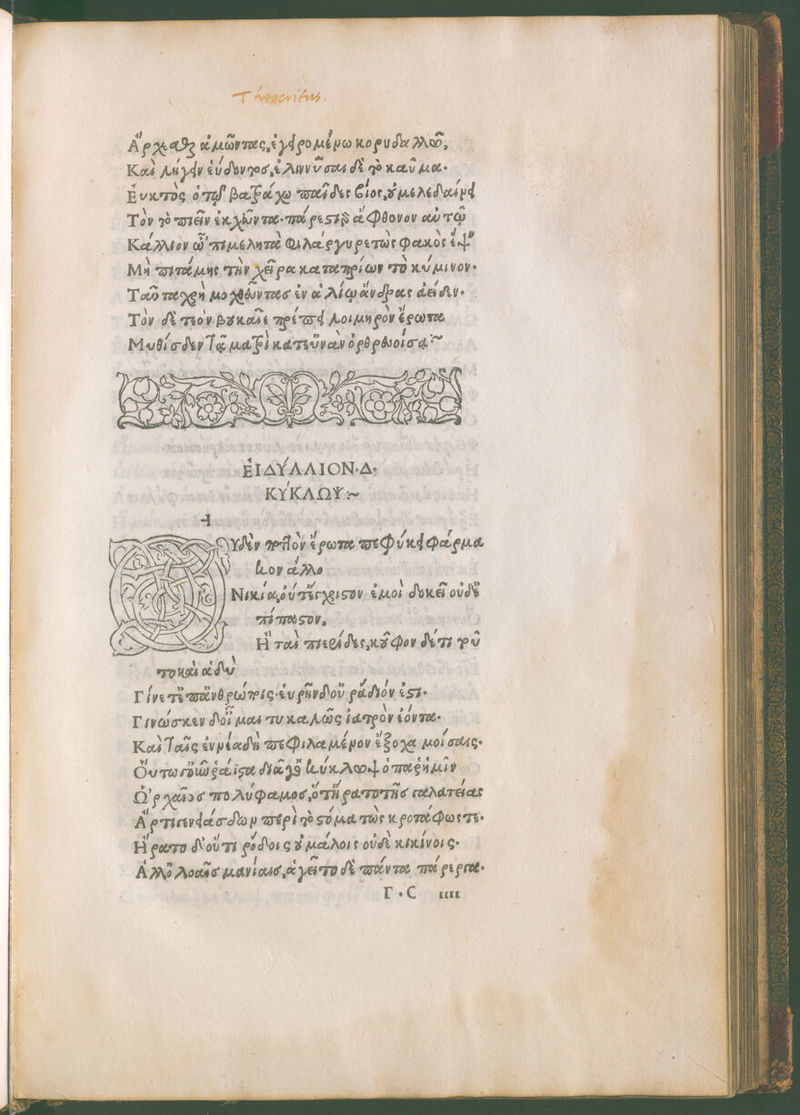 Theocritus.
Ἄρχεσθε ἀμῶντας, ἐγειρομένω κορυδαλλῶ,
Καὶ λήγειν εὕδοντος, ἐλιννῦσαι δὲ τὸ καῦμα.
Εὐκτὸς ὁ τῶ βατράχω παῖδες βίος, οὐ μελεδαίνει
Τὸν τὸ πιεῖν ἐκχεῦντα. πάρεστι γὰρ ἄφθονον αὐτῷ
Κάλλιον ὦ 'πιμελητὰ φιλάργυρε τὼς φακὼς ἕψειν
Μὴ πιτάμης τὴν χεῖρα καταπρίων τὸ κύμινον.
Ταῦτα χρὴ μοχθεῦντας ἐν ἁλίῳ ἄνδρας ἀείδειν.
Τὸν δὲ τεὸν βουκαῖε πρέπει λοιμηρὸν ἔρωτα
Μυθίσδεν τᾷ ματρὶ κατ' εὐνὰν ὀρθρευοίσᾳ :~
ἘΙΔΎΛΛΙΟΝ·Δ·
ΚΎΚΛΩΨ :~
Υδὲν ποττὸν ἔρωτα πεφύκει φάρμα
κον ἄλλο
Νικία, οὔτ' ἔγχριστον ἐμοὶ δοκεῖ οὐδ'
ἐπίπαστον,
Ἢ ταὶ πιερίδες, κοῦφον δέ τι τοῦ
το καὶ ἁδὺ
Γίνετ' ἐπ' ἀνθρώποις· εὑρεῖν δ' οὐ ῥᾴδιόν ἐστι.
Γινώσκεν δ' οἶμαί τυ καλῶς ἰατρὸν ἐόντα.
Καὶ ταῖς ἐννέα δὴ πεφιλαμένον ἔξοχα μοίσαις.
Οὕτω γοῦν ῥάϊστα διᾶγ' ὁ κύκλωψ ὁ παρ' ἡμῖν
Ὡρχαῖος πολύφαμος, ὅτ' ἤρατο τῆς γαλατείας
Ἄρτι γενειάσδων περὶ τὸ στόμα τὼς κροτάφως τε.
Ἤρατο δ' οὔτι ῥόδοις οὐ μάλοις οὐδὲ κικίνοις.
Ἀλλ' ὀλοαῖς μανίαις, ἁγεῖτο δὲ πάντα πάρεργα.
Γ·C iiii